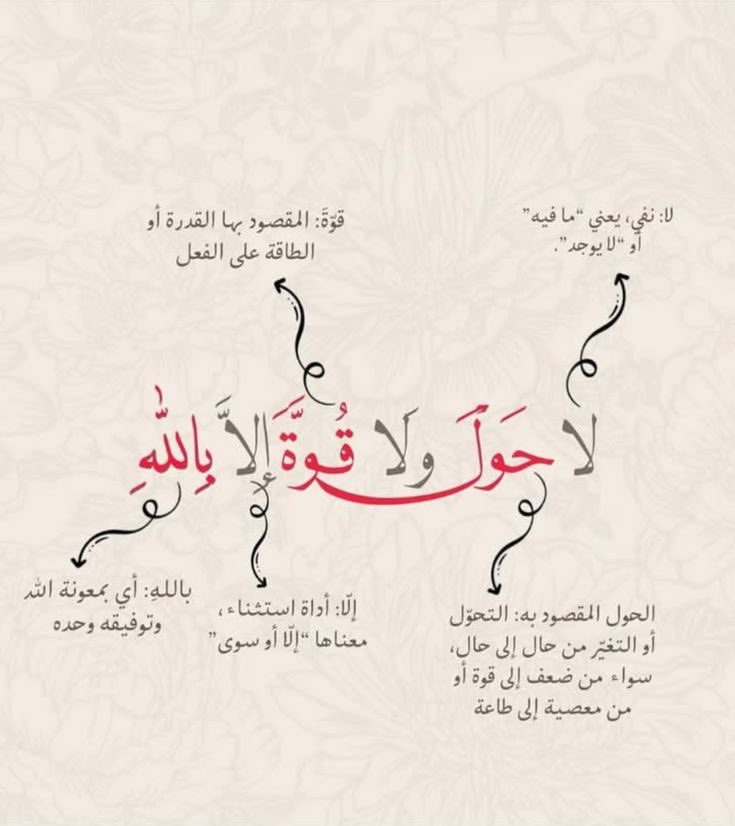 لا: نفي، يعني “ما فيه”
أو “لا يوجد”.
قوّةَ: المقصود بها القدرة أو
الطاقة على الفعل
لا حَولَ ولَا قُوَّةَ إلاَّ بِاللهِ
الحول المقصود به: التحوّل
أو التغيّر من حال إلى حال،
سواء من ضعف إلى قوة أو
من معصية إلى طاعة
إلّا: أداة استثناء،
معناها “إلّا أو سوى”
باللهِ: أي بمعونة الله
وتوفيقه وحده